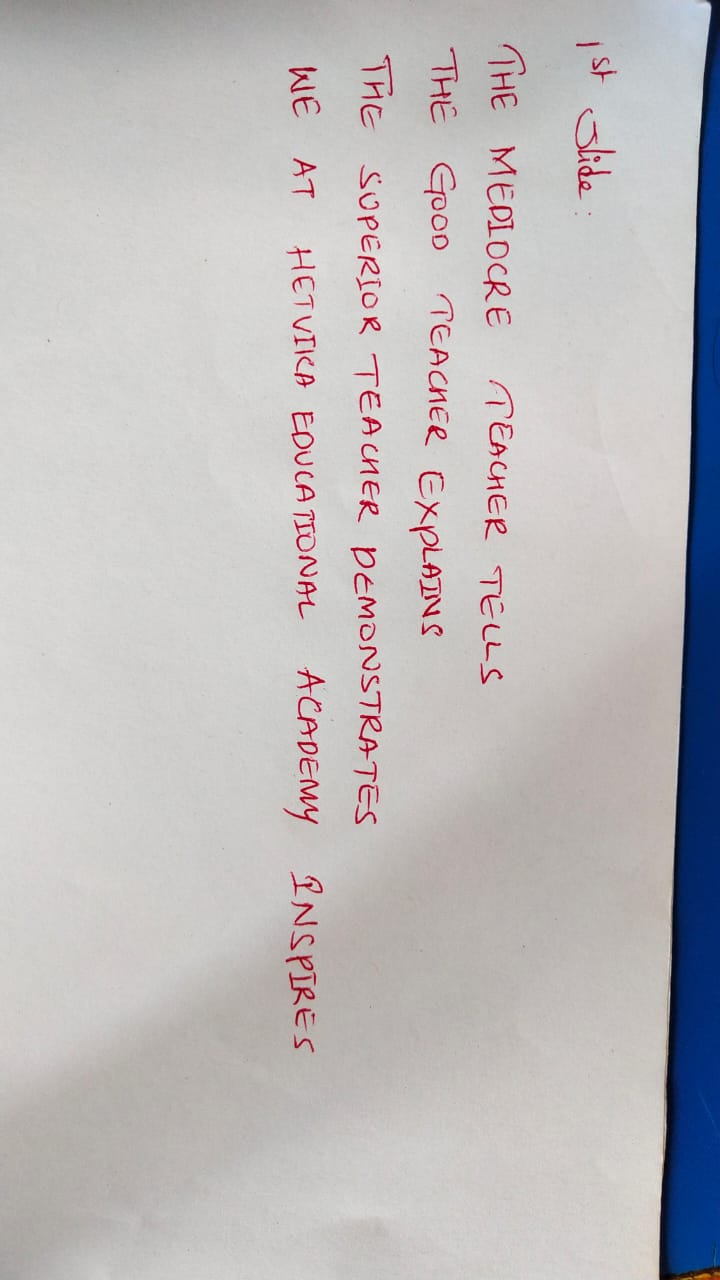 1st Slide:
THE MEDIOCRE TEACHER TELLS
THE GOOD TEACHER EXPLAINS
THE SUPERIOR TEACHER DEMONSTRATES
WE AT HETVIKA EDUCATIONAL ACADEMY INSPIRES